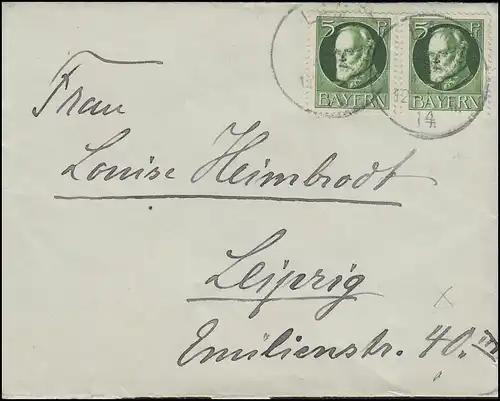 5 Pf 5 Pf
BAYERN BAYERN
12
14
Frau
Louise Heimbrodt
Leipzig
Emilienstr. 40.